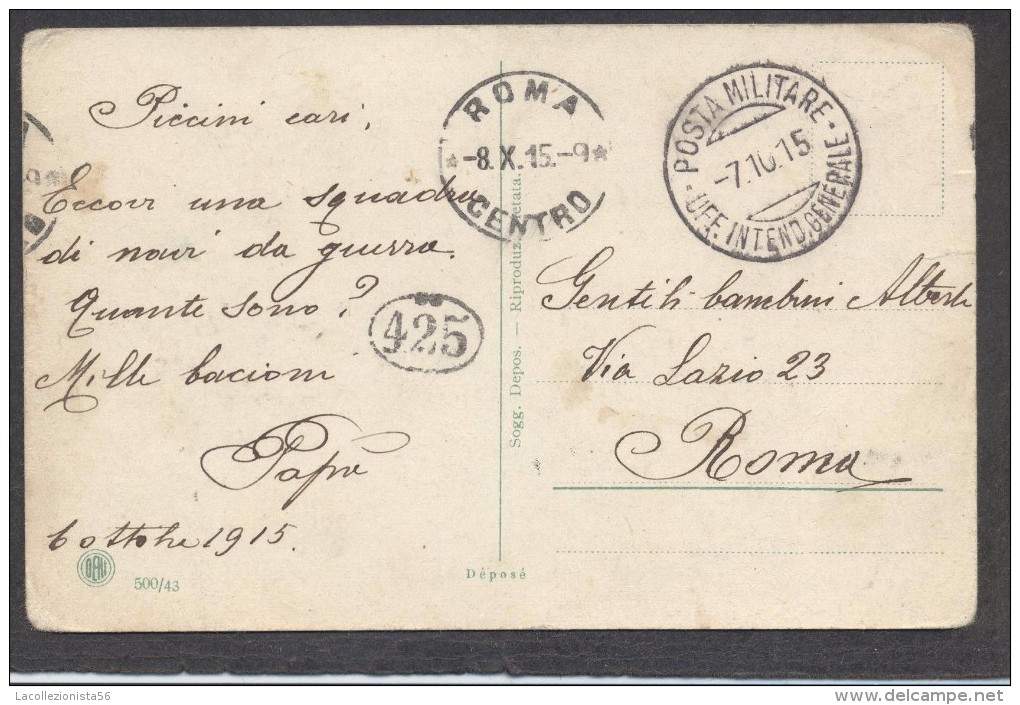 Piccini cari,
Eccovi una squadra
di navi da guerra.
Quante sono?
Mille bacioni
Papà
6 ottobre 1915.
500/43
ROMA
-8.X.15.-9
CENTRO
425
Sogg. Depos. — Riproduz. vietata.
Déposé
POSTA MILITARE
-7.10.15
UFF. INTEND. GENERALE
Gentili bambini Alberti
Via Lazio 23
Roma
Lacollezionista56
www.delcampe.net